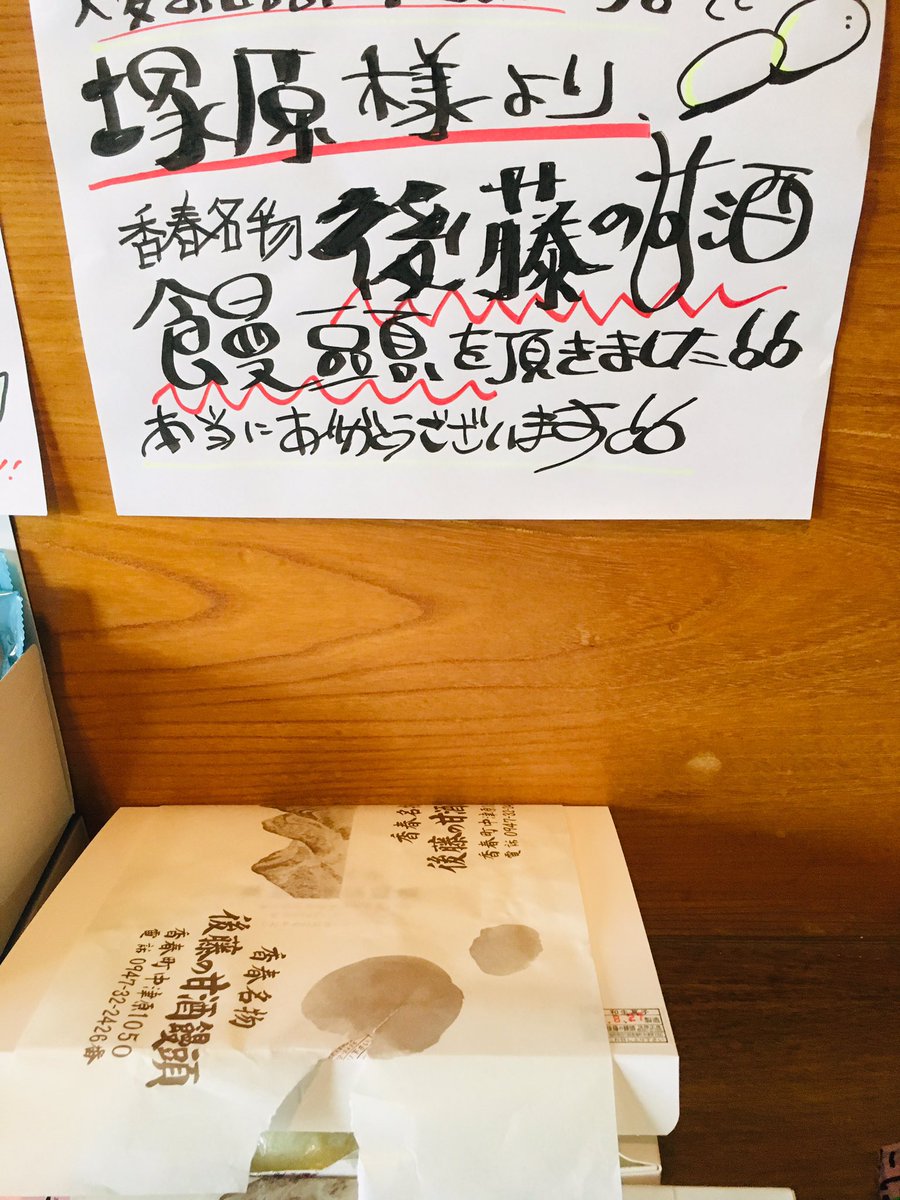 塚原様より、
香春名物 後藤の甘酒
饅頭を頂きました
本当にありがとうございます
香春名
後藤の甘酒
香春町中津原
電話0947-32-24
香春名物
後藤の甘酒饅頭
香春町中津原1050
電話0947-32-2426番